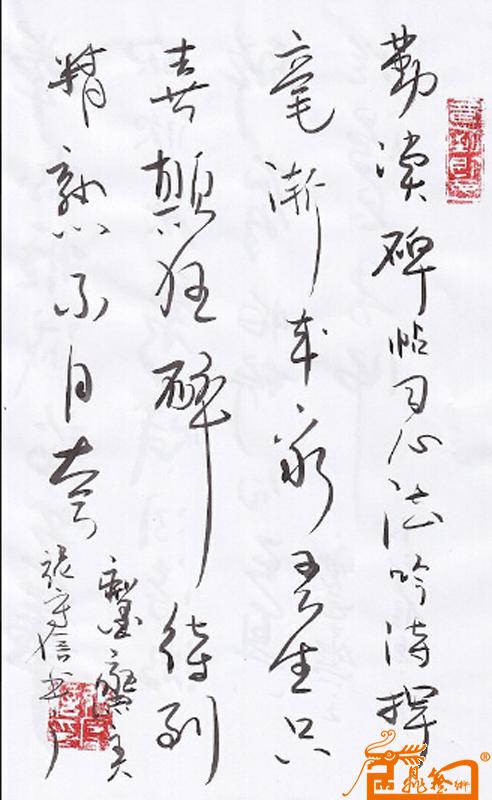 勤读碑帖习心法吟诗挥
毫渐成家吾生只
喜颠狂醉待到
精熟不自夸
张守信书